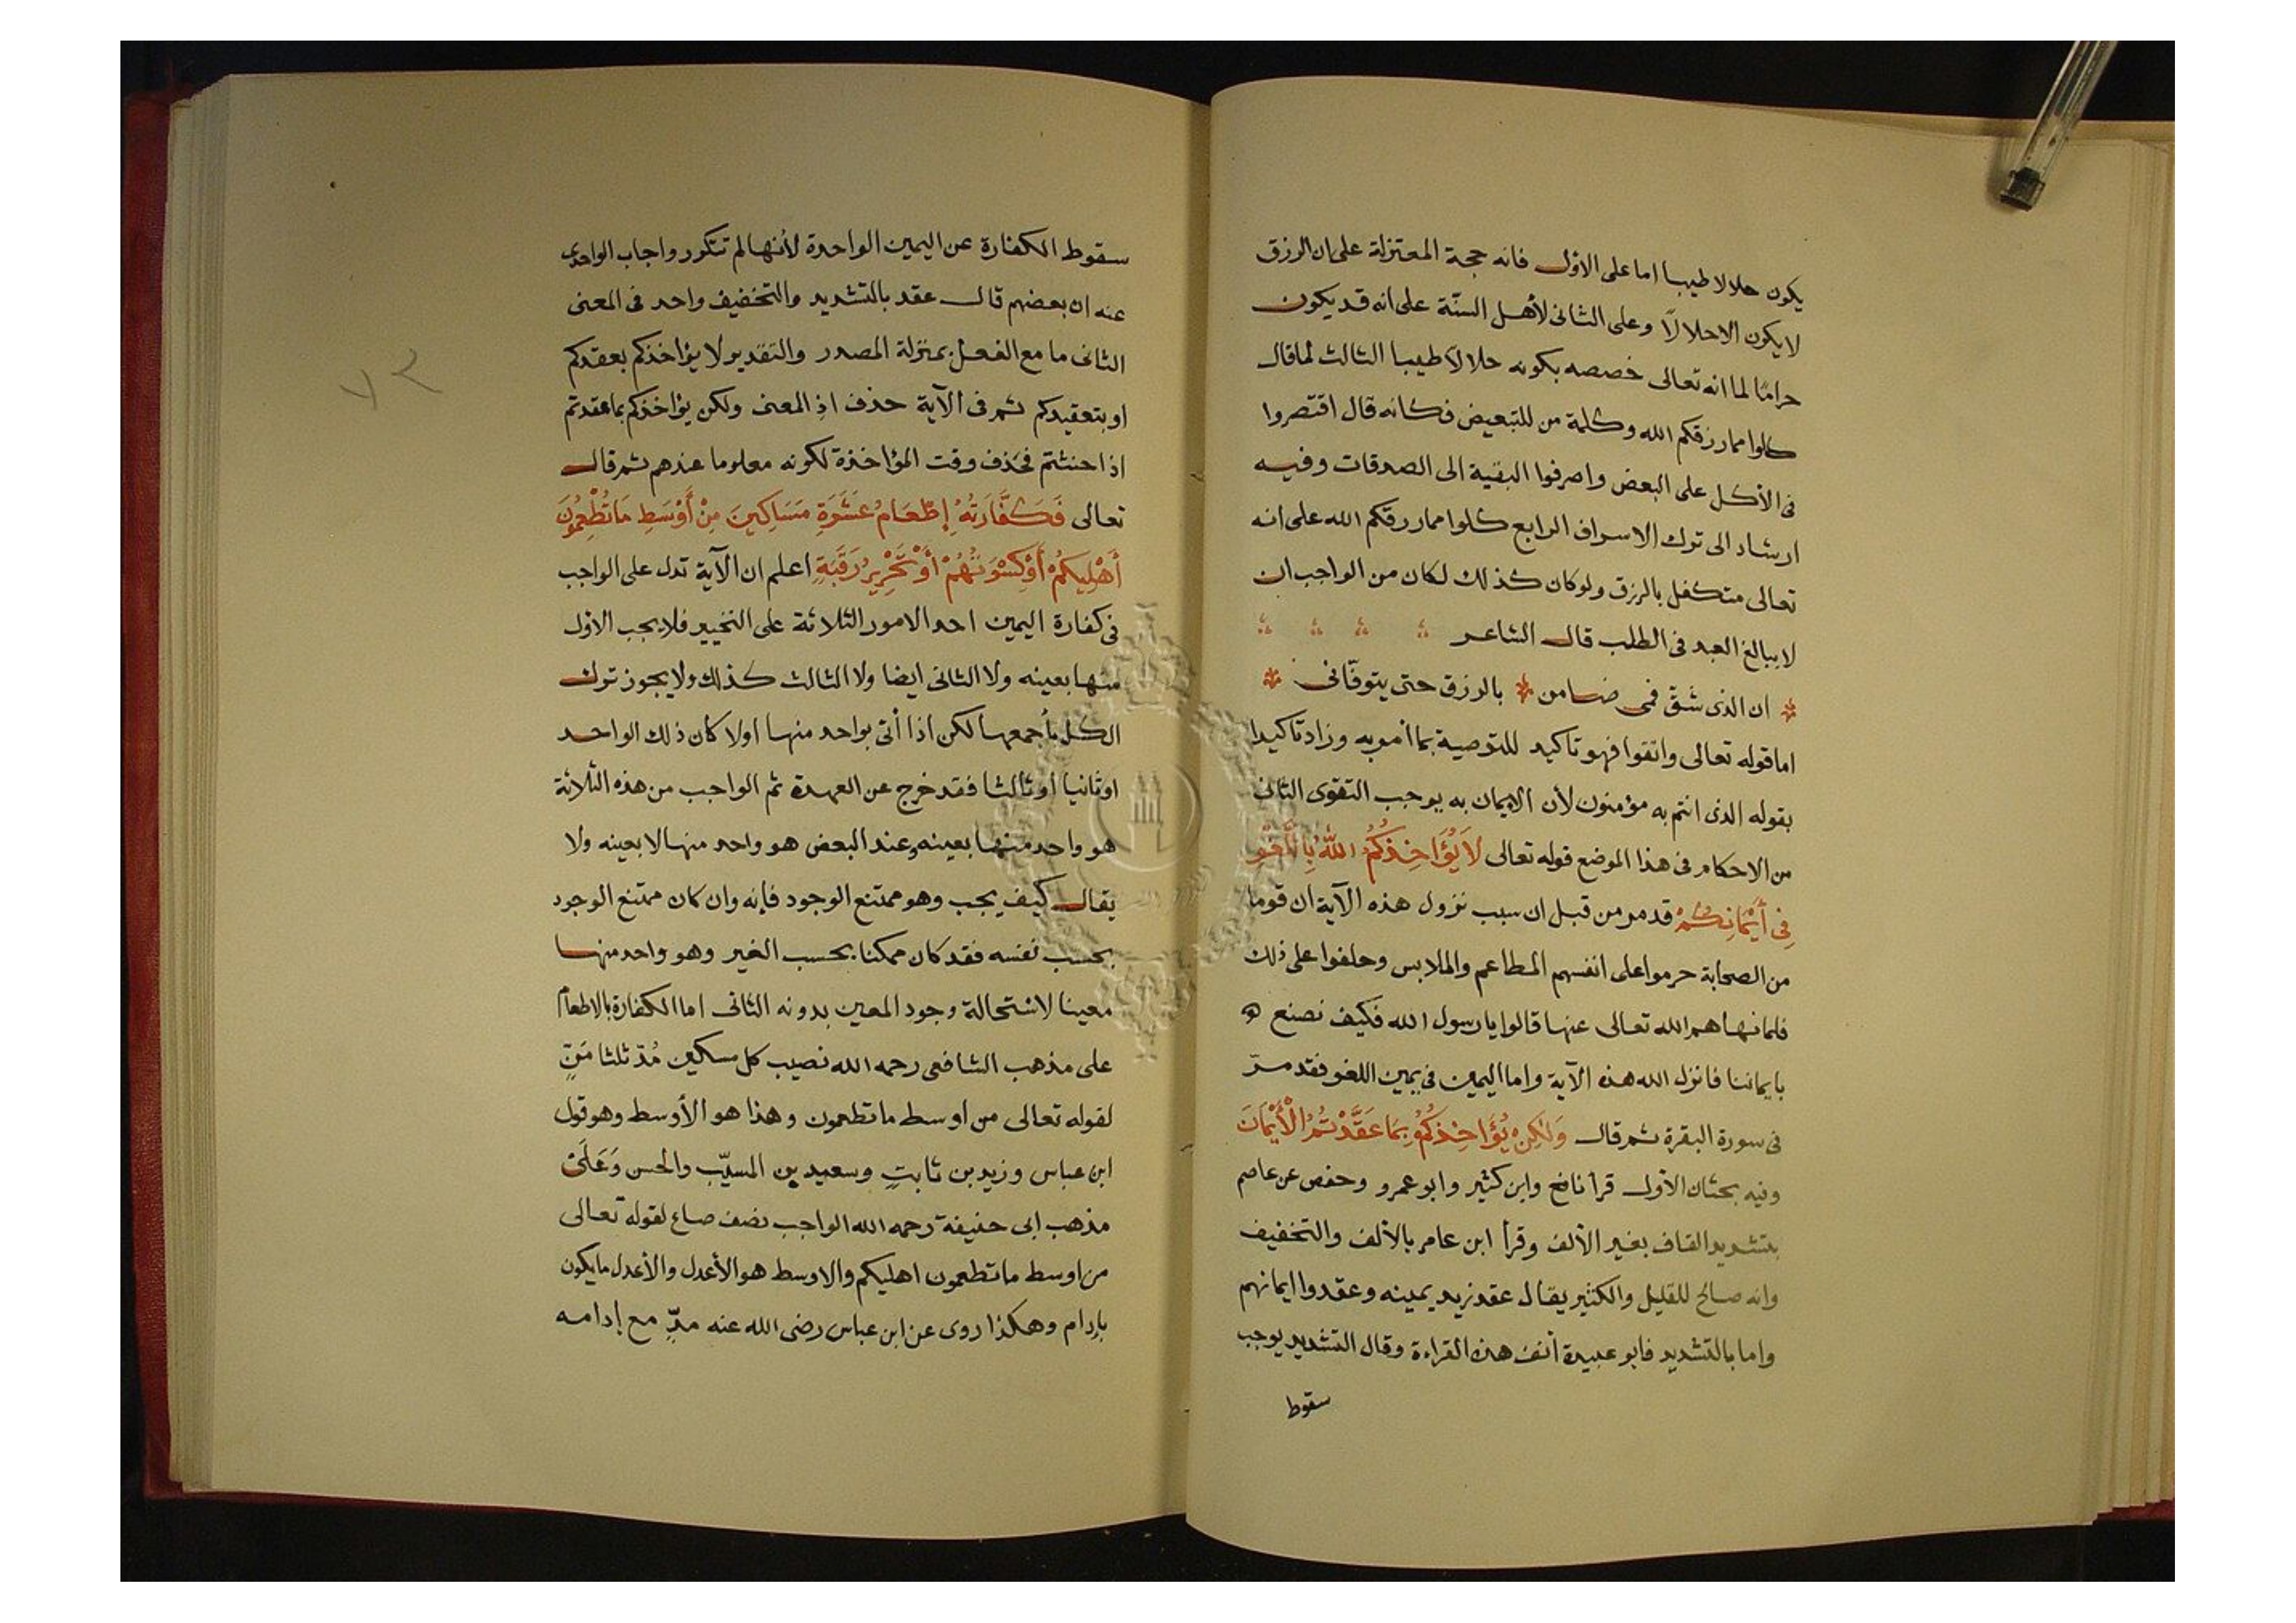 يكون حلالا طيبا اما على الاول فانه حجة المعتزلة على ان الرزق
لا يكون الا حلالاً وعلى الثانى لأهل السنّة على انه قد يكون
حرامًا لما انه تعالى خصصه بكونه حلالاً طيبا الثالث لما قال
كلوا مما رزقكم الله وكلمة من للتبعيض فكانه قال اقتصروا
فى الأكل على البعض واصرفوا البقية الى الصدقات وفيه
ارشاد الى ترك الاسراف الرابع كلوا مما رزقكم الله على انه
تعالى متكفل بالرزق ولو كان كذلك لكان من الواجب ان
لا يبالغ العبد فى الطلب قال الشاعر
ان الذى شَقّ فمى ضامن * بالرزق حتى يتوفّانى *
اما قوله تعالى واتقوا فهو تاكيد للتوصية بما أمر به وزاد تاكيدا
بقوله الذى انتم به مؤمنون لأن الايمان به يوجب التقوى الثانى
من الاحكام فى هذا الموضع قوله تعالى لَا يُؤَاخِذُكُمُ اللّٰهُ بِاللَّغْوِ
فِى أَيْمَانِكُمْ قد مر من قبل ان سبب نزول هذه الآية ان قوما
من الصحابة حرموا على انفسهم المطاعم والملابس وحلفوا على ذلك
فلما نهاهم الله تعالى عنها قالوا يا رسول الله فكيف نصنع
بايماننا فانزل الله هذه الآية واما اليمين فى يمين اللغو فقد مرّ
فى سورة البقرة ثم قال وَلٰكِنْ يُؤَاخِذُكُمْ بِمَا عَقَّدْتُمُ الْأَيْمَانَ
وفيه بحثان الأول قرأ نافع وابن كثير وابو عمرو وحفص عن عاصم
بتشديد القاف بغير الألف وقرأ ابن عامر بالألف والتخفيف
وانه صالح للقليل والكثير يقال عقد زيد يمينه وعقدوا ايمانهم
واما بالتشديد فابو عبيدة أنف هذه القراءة وقال التشديد يوجب
سقوط
سقوط الكفارة عن اليمين الواحدة لأنها لم تتكرر واجاب الواحدى
عنه ان بعضهم قال عقد بالتشديد والتخفيف واحد فى المعنى
الثانى ما مع الفعل بمنزلة المصدر والتقدير لا يؤاخذكم بعقدكم
او بتعقيدكم ثم فى الآية حذف اذِ المعنى ولكن يؤاخذكم بما عقدتم
اذا حنثتم فحذف وقت المؤاخذة لكونه معلوما عندهم ثم قال
تعالى فَكَفَّارَتُهُ إِطْعَامُ عَشَرَةِ مَسَاكِينَ مِنْ أَوْسَطِ مَا تُطْعِمُونَ
أَهْلِيكُمْ أَوْ كِسْوَتُهُمْ أَوْ تَحْرِيرُ رَقَبَةٍ اعلم ان الآية تدل على الواجب
فى كفارة اليمين احد الامور الثلاثة على التخيير فلا يجب الاول
منها بعينه ولا الثانى ايضا ولا الثالث كذلك ولا يجوز ترك
الكل بأجمعها لكن اذا أتى بواحد منها اولا كان ذلك الواحد
او ثانيا او ثالثا فقد خرج عن العهدة ثم الواجب من هذه الثلاثة
هو واحد منها بعينه وعند البعض هو واحد منها لا بعينه ولا
يقال كيف يجب وهو ممتنع الوجود فإنه وان كان ممتنع الوجود
بحسب نفسه فقد كان ممكنا بحسب الغير وهو واحد منها
معينا لاستحالة وجود المعين بدونه الثانى اما الكفارة بالاطعام
على مذهب الشافعى رحمه الله نصيب كل مسكين مُدّ ثلثا مَنٍّ
لقوله تعالى من اوسط ما تطعمون وهذا هو الأوسط وهو قول
ابن عباس وزيد بن ثابتٍ وسعيد بن المسيّب والحسن وَعَلَى
مذهب ابى حنيفة رحمه الله الواجب نصف صاع لقوله تعالى
من اوسط ما تطعمون اهليكم والاوسط هو الأعدل والأعدل ما يكون
بإدام وهكذا روى عن ابن عباس رضى الله عنه مدٍّ مع إدامه